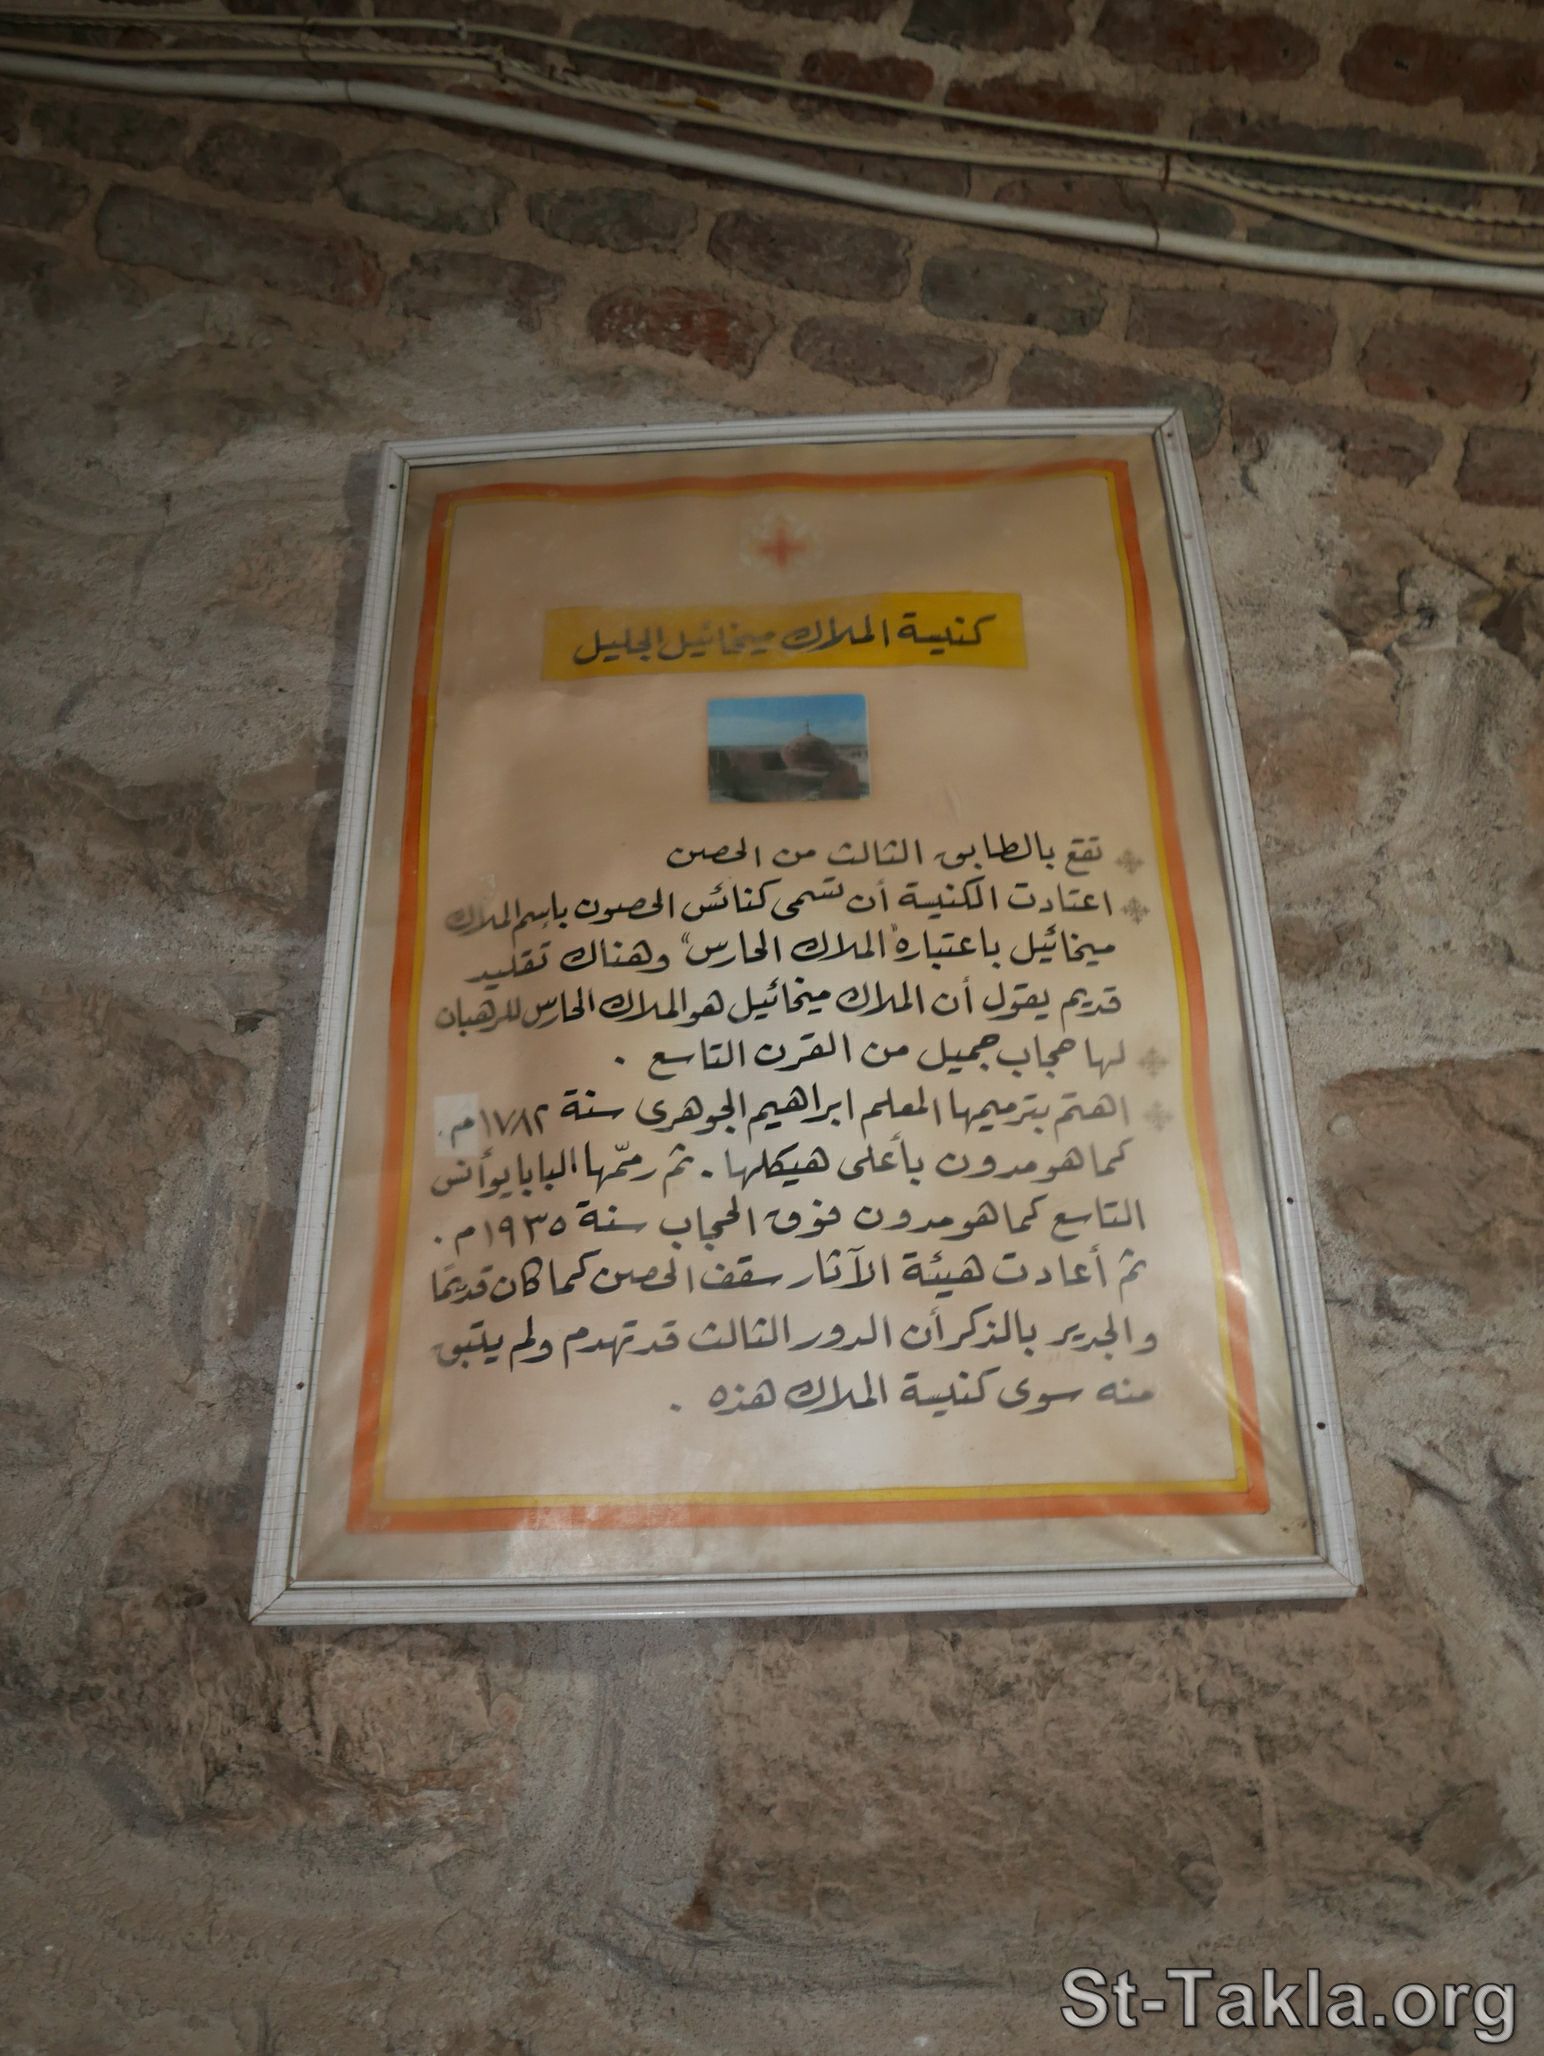 كنيسة الملاك ميخائيل الجليل
تقع بالطابق الثالث من الحصن
اعتادت الكنيسة أن تسمى كنائس الحصون بإسم الملاك
ميخائيل باعتباره "الملاك الحارس" وهناك تقليد
قديم يقول أن الملاك ميخائيل هو الملاك الحارس للرهبان
لها حجاب جميل من القرن التاسع .
اهتم بترميمها المعلم ابراهيم الجوهرى سنة ١٧٨٢م.
كما هو مدون بأعلى هيكلها . ثم رمّمها البابا يوأنس
التاسع كما هو مدون فوق الحجاب سنة ١٩٣٥م .
ثم أعادت هيئة الآثار سقف الحصن كما كان قديمًا
والجدير بالذكر أن الدور الثالث قد تهدم ولم يتبق
منه سوى كنيسة الملاك هذه .
St-Takla.org